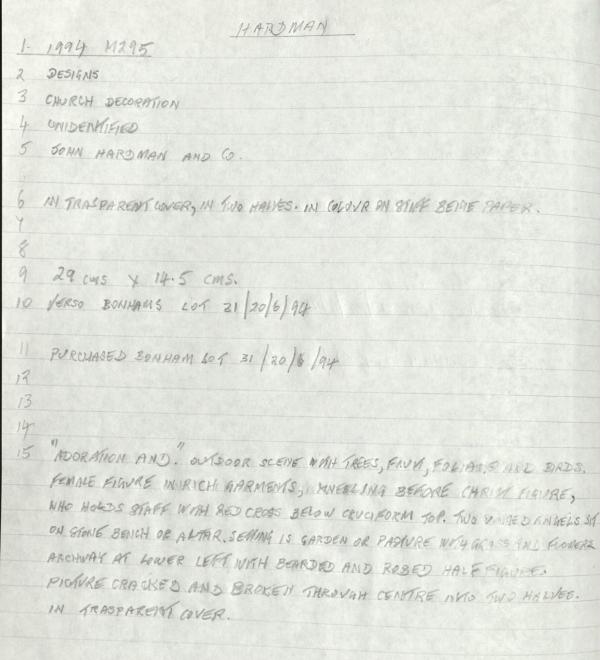 HARDMAN
1. 1994 M295
2 DESIGNS
3 CHURCH DECORATION
4 UNIDENTIFIED
5 JOHN HARDMAN AND CO.
6 IN TRASPARENT COVER, IN TWO HALVES. IN COLOUR ON STIFF BEIGE PAPER.
7
8
9 29 cms x 14.5 cms.
10 VERSO BONHAMS LOT 31/20/6/94
11 PURCHASED BONHAM LOT 31/20/6/94
12
13
14
15 "ADORATION AND." OUTDOOR SCENE WITH TREES, FRUIT, FOLIAGE AND BIRDS.
FEMALE FIGURE IN RICH GARMENTS, KNEELING BEFORE CHRIST FIGURE,
WHO HOLDS STAFF WITH RED CROSS BELOW CRUCIFORM TOP. TWO WINGED ANGELS SIT
ON STONE BENCH OR ALTAR. SETTING IS GARDEN OR PASTURE WITH GRASS AND FLOWERS
ARCHWAY AT LOWER LEFT WITH BEARDED AND ROBED HALF FIGURE.
PICTURE CRACKED AND BROKEN THROUGH CENTRE INTO TWO HALVES.
IN TRASPARENT COVER.